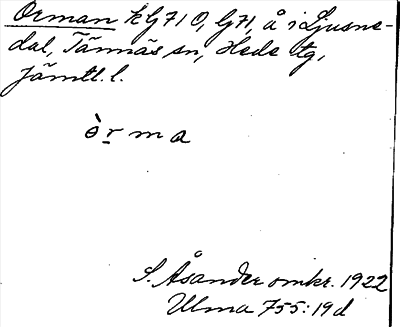 Orman kG71 O, G71, å i Ljusne-
dal, Tännäs sn, Hede tg,
Jämtl. l.
òrma
S. Åsander omkr. 1922
Ulma 755:19d